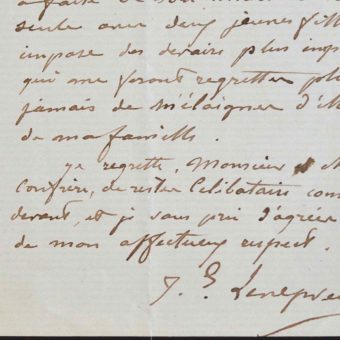 seule avec deux jeunes fill
impose des devoirs plus imp
qui me feront regretter plu
jamais de m'éloigner d'
de ma famille.
Je regrette, Monsieur
Confrère, de rester Célibataire com
devant, et je vous prie d'agréer
de mon affectueux respect.